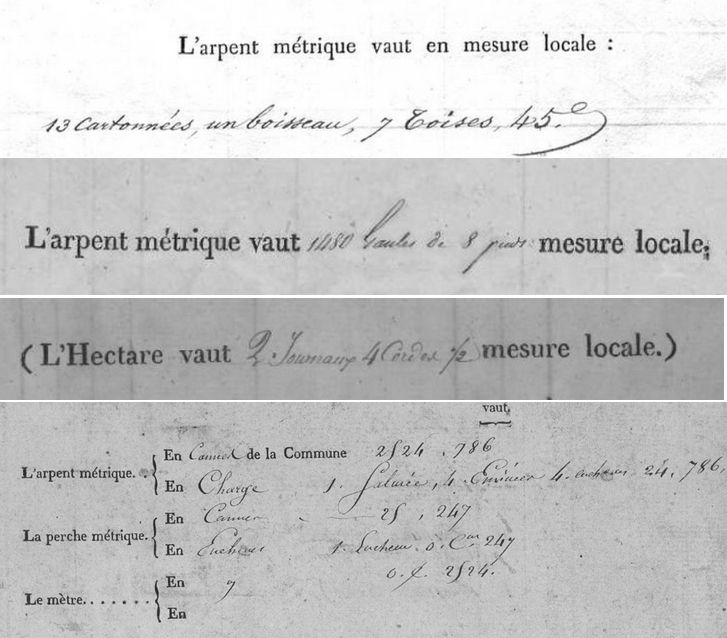 L'arpent métrique vaut en mesure locale :
13 Cartonnées, un boisseau, 7 Toises, 45.
L'arpent métrique vaut 1480 Gaules de 8 pieds mesure locale;
(L'Hectare vaut 2 Journaux 4 Cordes 1/2 mesure locale.)
vaut.
L'arpent métrique. . En Cannes de la Commune 2524 . 786
En Charge 1. Salmée, 4. 4. 24. 786,
La perche métrique. En Cannes 25 , 247
En 1. 0. 247
Le mètre. . . . . . . En 0. 2524.
En